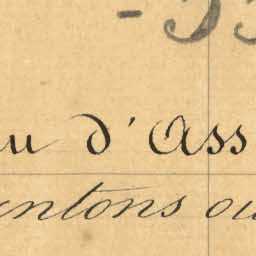 -33
au d'Ass
antons ou